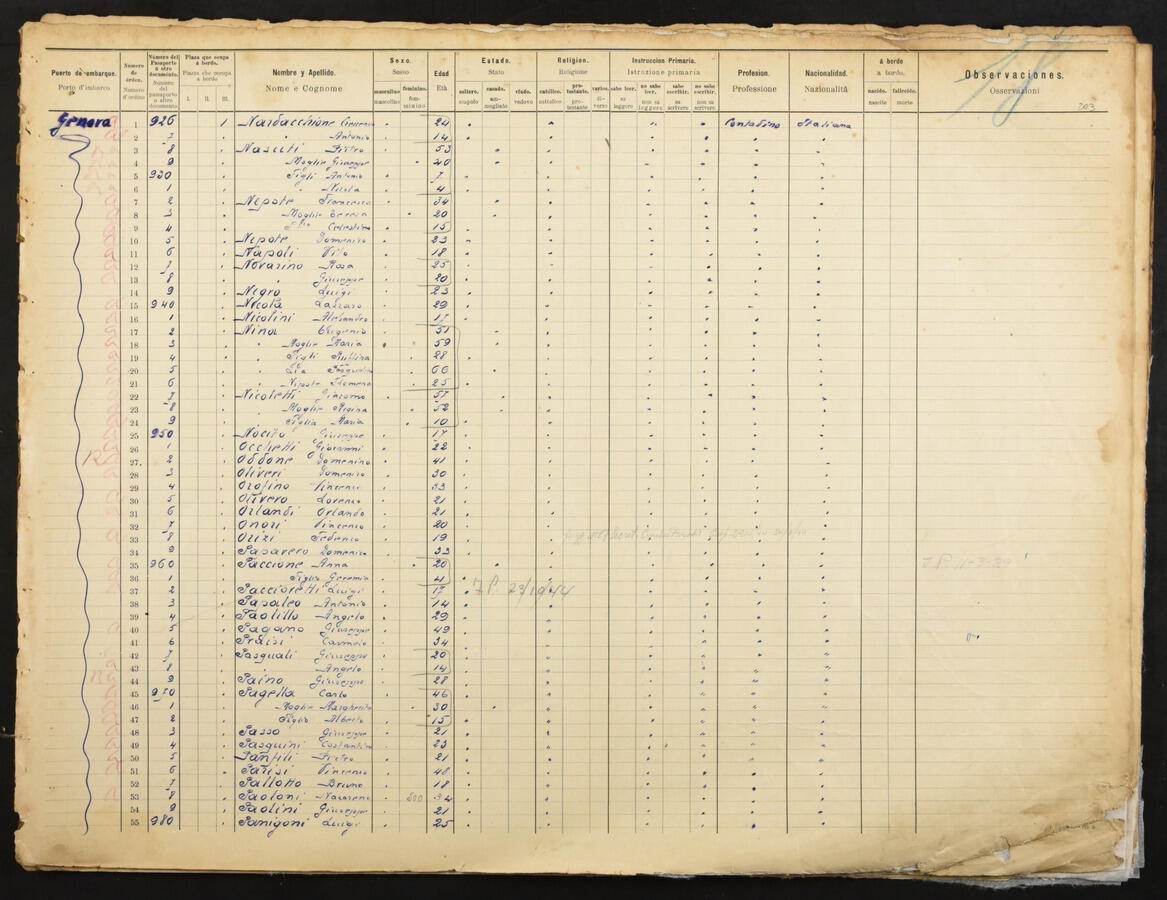 Puerto de embarque. Porto d'imbarco
Número de órden. Numero d'ordine
Número del Pasaporte ú otro documento. Numero del passaporto o altro documento
Plaza que ocupa á bordo. Piazza che occupa a bordo I. II. III.
Nombre y Apellido. Nome e Cognome
Sexo. Sesso masculino femenino.
Edad Età
Estado. Stato soltero. scapolo casado. ammogliato viudo. vedovo
Religion. Religione católico. cattolico protestante. protestante varios. diverso
Instruccion Primaria. Istruzione primaria sabe leer. sa leggere no sabe leer. non sa leggere sabe escribir. sa scrivere no sabe escribir. non sa scrivere
Profesion. Professione
Nacionalidad. Nazionalità
á bordo a bordo. nacido. nascito fallecido. morto
Observaciones. Osservazioni
203
Genova 1 926 1 Nardacchione 24 Contadino Italiana
2 7 " Antonio 14
3 8 Nasuti Pietro 53
4 9 Moglie Giuseppa 40
5 930 Figli Antonio 7
6 1 " Nicola 4
7 2 Nepote Francesco 34
8 3 Moglie Teresa 20
9 4 Celestino 15
10 5 Nepote Domenico 23
11 6 Napoli Vito 18
12 7 Novarino Rosa 25
13 8 " Giuseppe 20
14 9 Negro Luigi 23
15 940 Nicola Lazzaro 29
16 1 Nicolini Alessandro 17
17 2 Nina Eugenio 51
18 3 " Moglie Maria 59
19 4 " Figli Ruffina 28
20 5 " 66
21 6 " Nipote Filomena 25
22 7 Nicoletti Giacomo 57
23 8 Moglie Regina 52
24 9 Figlia Maria 10
25 950 Nocito Giuseppe 17
26 1 Occhetti Giovanni 22
27 2 Oddone Domenico 41
28 3 Oliveri Domenico 30
29 4 Orofino Vincenzo 33
30 5 Olivero Lorenzo 21
31 6 Orlandi Orlando 21
32 7 Onori Vincenzo 20
33 8 Orizi Federico 19
34 9 Passavero Domenico 33
35 960 Paccione Anna 20 I.P. 11-3-39
36 1 Figlio Geremia 4
37 2 Paccioretti Luigi 17 I.P. 23/1944
38 3 Papaleo Antonio 14
39 4 Paolillo Angelo 29
40 5 Pagano Giuseppe 49
41 6 Praisi Carmelo 34
42 7 Pasquali Giuseppe 20
43 8 " Angelo 14
44 9 Paino Giuseppe 28
45 970 Pagella Carlo 46
46 1 Moglie Margherita 30
47 2 Figlio Alberto 15
48 3 Passo Giuseppe 21
49 4 Pasquini Costantino 23
50 5 Panfili Pietro 21
51 6 Parisi Vincenzo 48
52 7 Pallotto Bruno 18
53 8 Paoloni Nazareno 34
54 9 Paolini Giuseppe 21
55 980 Panigoni Luigi 25